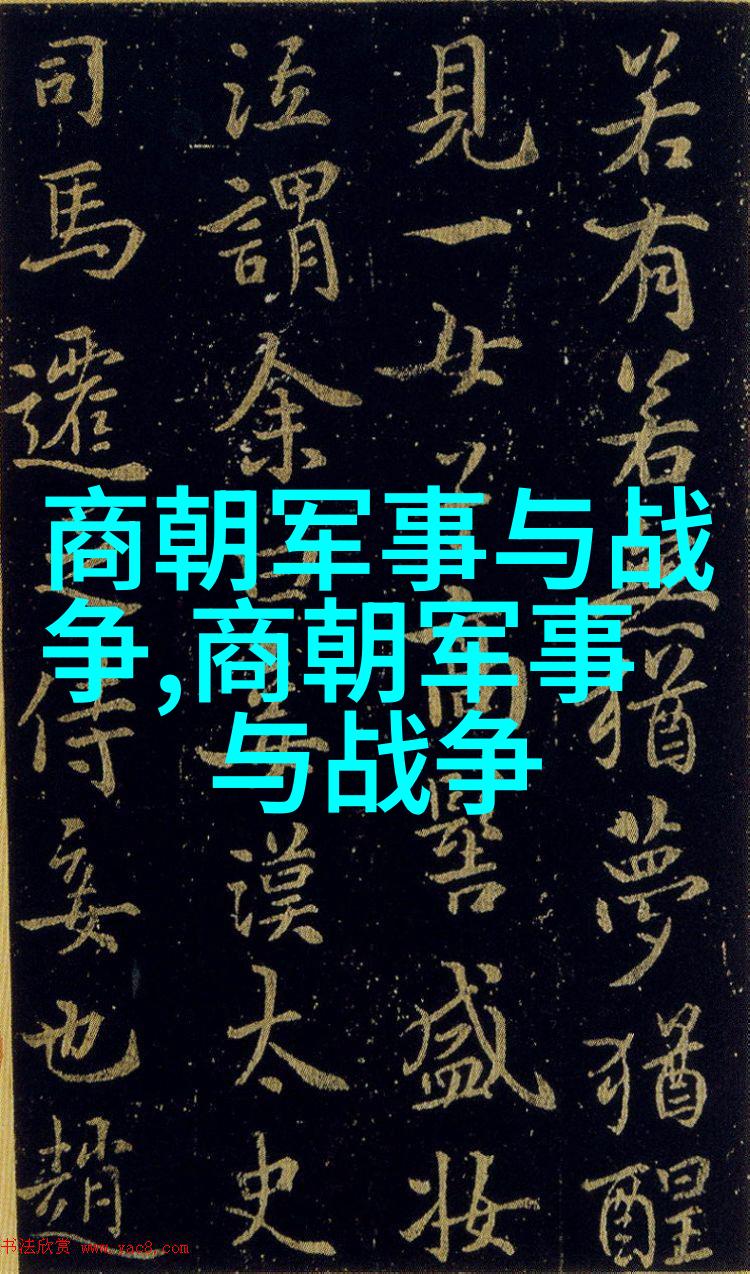 若有若無猶夢猶醒
見一女子高髻盛妝
泣謂余曰妾漢太史
司馬遷之侍妾也趙
商朝军事与战
争,商朝军事
与战争
书法欣赏 www.yac8.com